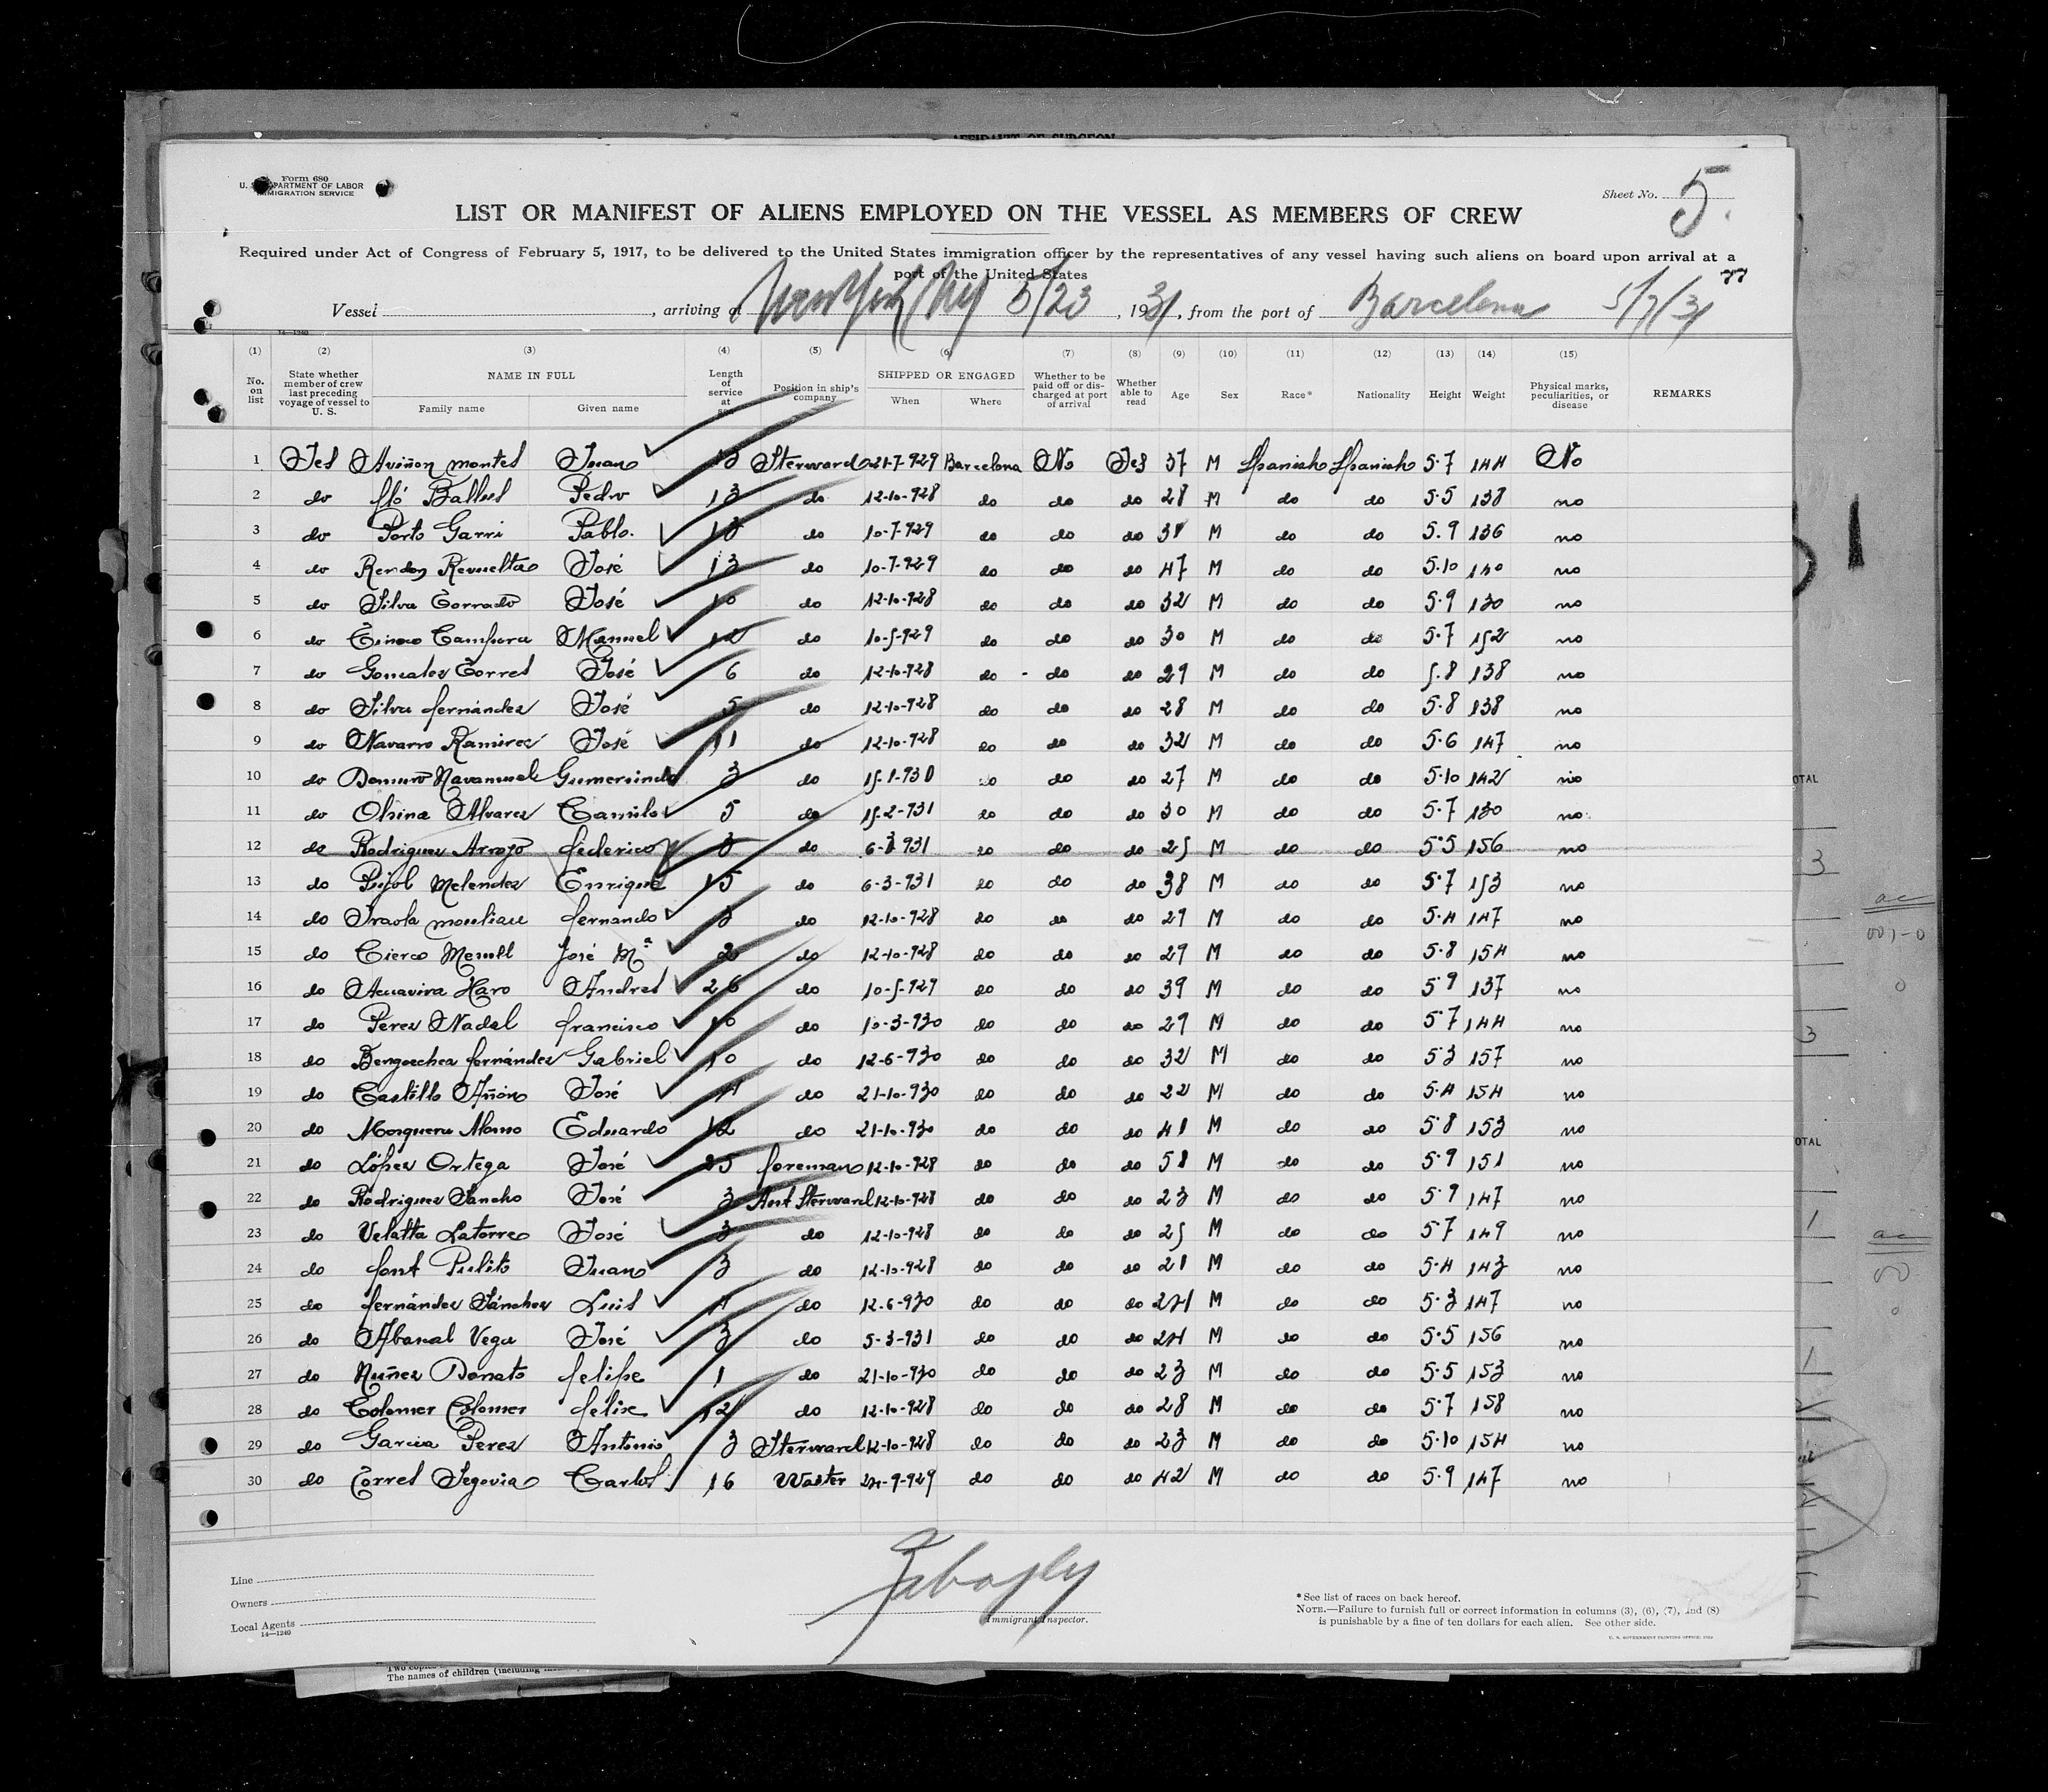 AFFIDAVIT OF SURGEON
Form 680
U. S. DEPARTMENT OF LABOR
IMMIGRATION SERVICE
Sheet No. 5.
LIST OR MANIFEST OF ALIENS EMPLOYED ON THE VESSEL AS MEMBERS OF CREW
Required under Act of Congress of February 5, 1917, to be delivered to the United States immigration officer by the representatives of any vessel having such aliens on board upon arrival at a
port of the United States
Vessel , arriving at New York Ny 5/23 , 1931, from the port of Barcelona 5/7/31
14—1240
(1) (2) (3) (4) (5) (6) (7) (8) (9) (10) (11) (12) (13) (14) (15)
No. on list State whether member of crew last preceding voyage of vessel to U. S. NAME IN FULL Family name Given name Length of service at sea Position in ship's company SHIPPED OR ENGAGED When Where Whether to be paid off or discharged at port of arrival Whether able to read Age Sex Race* Nationality Height Weight Physical marks, peculiarities, or disease REMARKS
1 Yes Aviñon montes Juan 13 Sterward 21-7-929 Barcelona No Yes 37 M Spanish Spanish 5.7 144 No
2 do fló Ballus Pedro 13 do 12-10-928 do do do 28 M do do 5.5 138 no
3 do Porto Garri Pablo. 18 do 10-7-929 do do do 38 M do do 5.9 136 no
4 do Rendon Revuelta José 13 do 10-7-929 do do do 47 M do do 5.10 140 no
5 do Silva Torrado José 10 do 12-10-928 do do do 32 M do do 5.9 130 no
6 do Manuel 12 do 10-5-929 do do do 30 M do do 5.7 152 no
7 do Gonzalez Torres José 6 do 12-10-928 do do do 29 M do do 5.8 138 no
8 do Silva fernández José 5 do 12-10-928 do do do 28 M do do 5.8 138 no
9 do Navarro Ramirez José 11 do 12-10-928 do do do 32 M do do 5.6 147 no
10 do Gumersindo 3 do 15-1-930 do do do 27 M do do 5.10 142 no
11 do Olsina Alvarez Camilo 5 do 15-2-931 do do do 30 M do do 5.7 130 no
12 do Rodriguez Arroyo federico 3 do 6-3-931 do do do 25 M do do 5.5 156 no
13 do Pujol Melendez Enrique 15 do 6-3-931 do do do 38 M do do 5.7 153 no
14 do Iraola mouliau fernando 3 do 12-10-928 do do do 29 M do do 5.4 147 no
15 do Cierco José Mª 2 do 12-10-928 do do do 29 M do do 5.8 154 no
16 do Acuavira Haro Andres 26 do 10-5-929 do do do 39 M do do 5.9 137 no
17 do Perez Nadal francisco 10 do 10-3-930 do do do 29 M do do 5.7 144 no
18 do Bengoechea fernández Gabriel 10 do 12-6-930 do do do 32 M do do 5.3 157 no
19 do Castillo Añon José 4 do 21-10-930 do do do 22 M do do 5.4 154 no
20 do Mosquera Alonso Eduardo 12 do 21-10-930 do do do 41 M do do 5.8 153 no
21 do López Ortega José 25 foreman 12-10-928 do do do 58 M do do 5.9 151 no
22 do Rodriguez Sancho José 3 Asst Sterward 12-10-928 do do do 23 M do do 5.9 147 no
23 do Velatta Latorre José 3 do 12-10-928 do do do 25 M do do 5.7 149 no
24 do font Pulito Juan 3 do 12-10-928 do do do 21 M do do 5.4 143 no
25 do fernández Sánchez Luis 4 do 12-6-930 do do do 24 M do do 5.3 147 no
26 do Abascal Vega José 3 do 5-3-931 do do do 24 M do do 5.5 156 no
27 do Nuñez Donato felipe 1 do 21-10-930 do do do 23 M do do 5.5 153 no
28 do Colomer Colomer felix 12 do 12-10-928 do do do 28 M do do 5.7 158 no
29 do Garcia Perez Antonio 3 Sterward 12-10-928 do do do 23 M do do 5.10 154 no
30 do Torres Segovia Carlos 16 Waiter 24-9-929 do do do 42 M do do 5.9 147 no
Line
Owners
Local Agents
14—1240
Immigrant Inspector.
* See list of races on back hereof.
NOTE.—Failure to furnish full or correct information in columns (3), (6), (7), and (8)
is punishable by a fine of ten dollars for each alien. See other side.
U. S. GOVERNMENT PRINTING OFFICE: 1929
The names of children (including